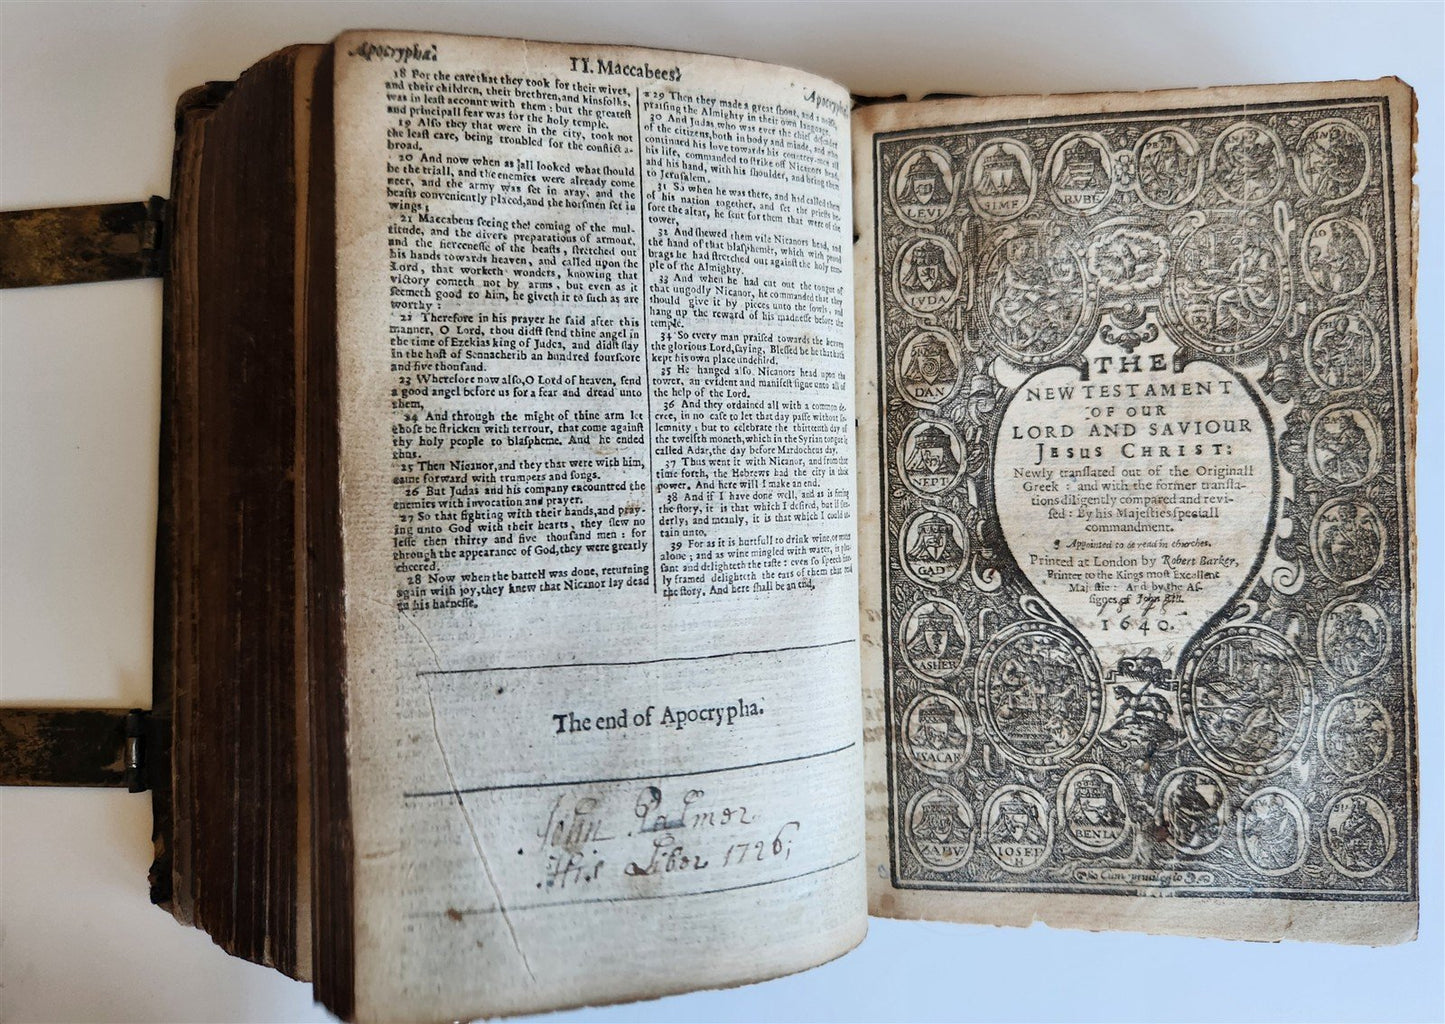 Apocrypha.
II. Maccabees.
Apocrypha.
18 For the care that they took for their wives,
and their children, their brethren, and kinsfolks,
was in least account with them : but the greatest
and principall fear was for the holy temple.
19 Also they that were in the city, took not
the least care, being troubled for the conflict a-
broad.
20 And now when as all looked what should
be the triall, and the enemies were already come
neer, and the army was set in aray, and the
beasts conveniently placed, and the horsmen set in
wings ;
21 Maccabeus seeing the coming of the mul-
titude, and the divers preparations of armour,
and the fiercenesse of the beasts, stretched out
his hands towards heaven, and called upon the
Lord, that worketh wonders, knowing that
victory cometh not by arms, but even as it
seemeth good to him, he giveth it to such as are
worthy :
22 Therefore in his prayer he said after this
manner, O Lord, thou didst send thine angel in
the time of Ezekias king of Judea, and didst slay
in the host of Sennacherib an hundred fourscore
and five thousand.
23 Wherefore now also, O Lord of heaven, send
a good angel before us for a fear and dread unto
them,
24 And through the might of thine arm let
those be stricken with terrour, that come against
thy holy people to blaspheme. And he ended
thus.
25 Then Nicanor, and they that were with him,
came forward with trumpets and songs.
26 But Judas and his company encountred the
enemies with invocation and prayer.
27 So that fighting with their hands, and pray-
ing unto God with their hearts, they slew no
lesse then thirty and five thousand men : for
through the appearance of God, they were greatly
cheered.
28 Now when the battell was done, returning
again with joy, they knew that Nicanor lay dead
in his harnesse.
29 Then they made a great shout, and a noise,
praising the Almighty in their own language,
30 And Judas, who was ever the chief defender
of the citizens, both in body and minde, and who
continued his love towards his countrey-men all
his life, commanded to strike off Nicanors head,
and his hand, with his shoulder, and bring them
to Jerusalem.
31 So when he was there, and had called them
of his nation together, and set the priests be-
fore the altar, he sent for them that were of the
tower,
32 And shewed them vile Nicanors head, and
the hand of that blasphemer, which with proud
brags he had stretched out against the holy tem-
ple of the Almighty.
33 And when he had cut out the tongue of
that ungodly Nicanor, he commanded that they
should give it by pieces unto the fowls, and
hang up the reward of his madnesse before the
temple.
34 So every man praised towards the heaven
the glorious Lord, saying, Blessed be he that hath
kept his own place undefiled.
35 He hanged also Nicanors head upon the
tower, an evident and manifest signe unto all of
the help of the Lord.
36 And they ordained all with a common de-
cree, in no case to let that day passe without so-
lemnity : but to celebrate the thirteenth day of
the twelfth moneth, which in the Syrian tongue is
called Adar, the day before Mardocheus day.
37 Thus went it with Nicanor, and from that
time forth, the Hebrews had the city in their
power. And here will I make an end.
38 And if I have done well, and as is fitting
the story, it is that which I desired, but if slen-
derly, and meanly, it is that which I could at-
tain unto.
39 For as it is hurtfull to drink wine, or water
alone ; and as wine mingled with water, is plea-
sant and delighteth the taste : even so speech fine-
ly framed delighteth the ears of them that read
the story. And here shall be an end.
The end of Apocrypha.
John Palmer
His Liber 1726;
LEVI
SIME
RVBE
IVDA
DAN
NEPT
GAD
ASHER
ISACAR
ZABV
IOSEPH
BENIA
THE
NEW TESTAMENT
OF OUR
LORD AND SAVIOUR
JESUS CHRIST:
Newly translated out of the Originall
Greek : and with the former transla-
tions diligently compared and revi-
sed : By his Majesties speciall
commandment.
¶ Appointed to be read in churches.
Printed at London by Robert Barker,
Printer to the Kings most Excellent
Majestie : And by the As-
signes of John Bill.
1640.
Cum privilegio